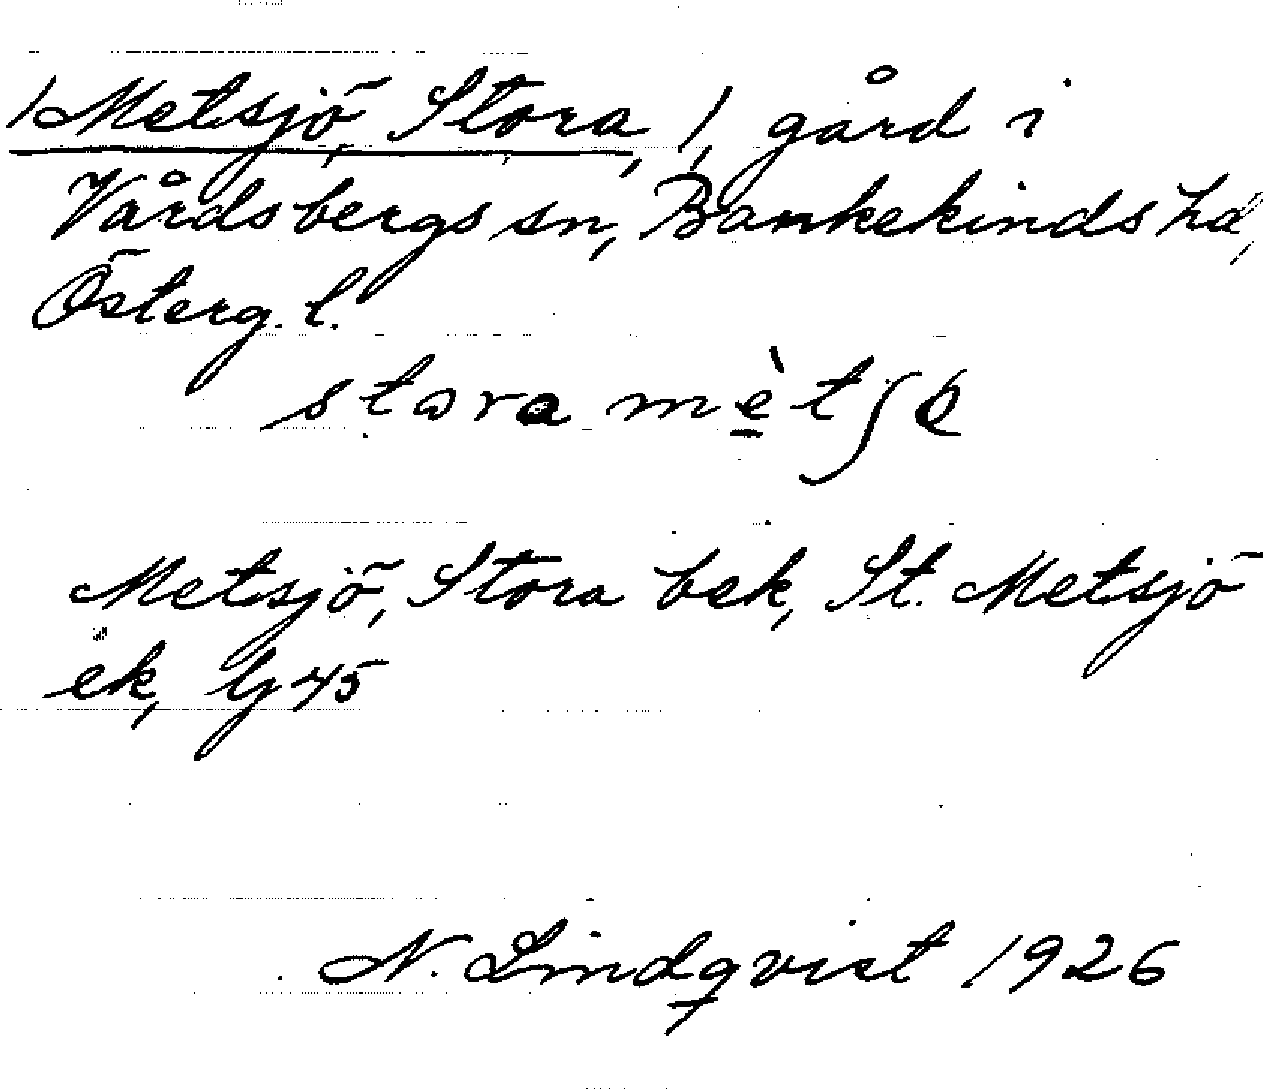 /Metsjö, Stora, /, gård i
Vårdsbergs sn, Bankekinds hd,
Österg. l.
stora mètʃo̤
Metsjö, Stora bek, St. Metsjö
ek, Gj 45
N. Lindqvist 1926